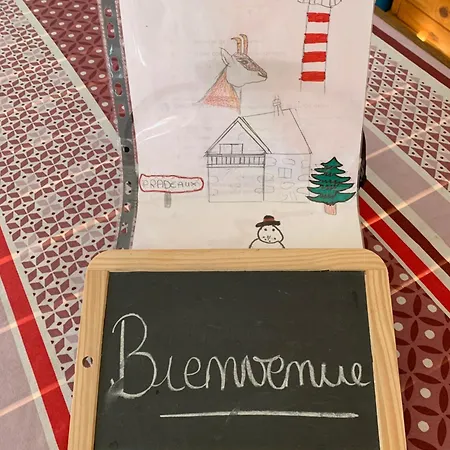 PRADEAUX
Bienvenue